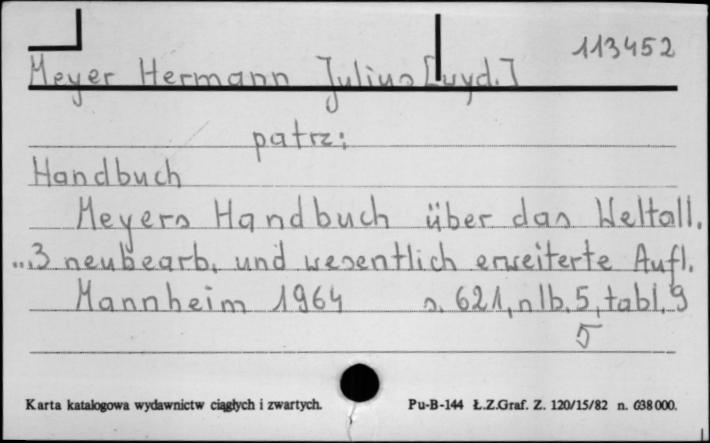 113452
Meyer Hermann Julius [wyd.]
patrz:
Handbuch
Meyers Handbuch über das Weltall.
...3 neubearb. und wesentlich erweiterte Aufl.
Mannheim 1964 s. 621, nlb. 5, tabl. 9
5
Karta katalogowa wydawnictw ciągłych i zwartych. Pu-B-144 Ł.Z.Graf. Z. 120/15/82 n. 038000.